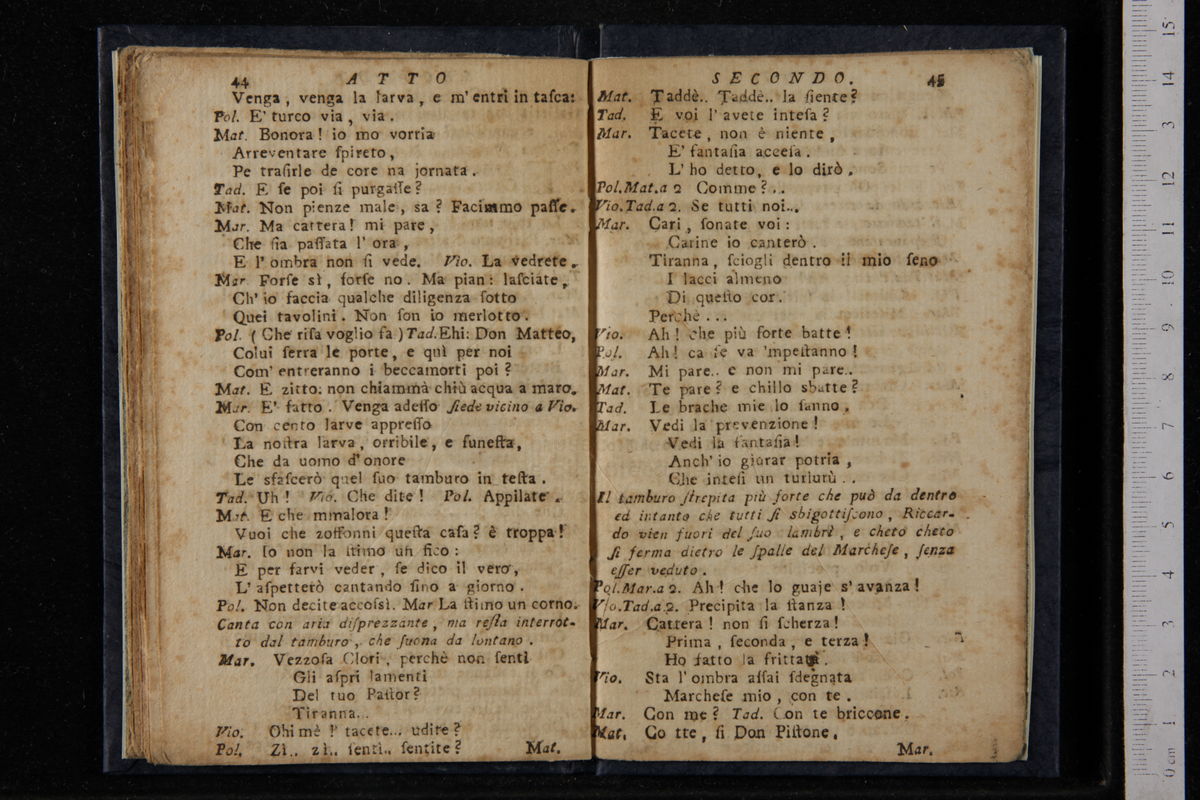 44 ATTO
Venga, venga la larva, e m'entri in tasca:
Pol. E' turco via, via.
Mat. Bonora! io mo vorria
Arreventare ſpireto,
Pe traſirle de core na jornata.
Tad. E ſe poi ſi purgaſſe?
Mat. Non pienze male, sa? Facimmo paſſe.
Mar. Ma cattera! mi pare,
Che ſia paſſata l'ora,
E l'ombra non ſi vede. Vio. La vedrete.
Mar. Forſe sì, forſe no. Ma pian: laſciate,
Ch'io faccia qualche diligenza ſotto
Quei tavolini. Non ſon io merlotto.
Pol. (Che riſa voglio fa) Tad. Ehi: Don Matteo,
Colui ſerra le porte, e quì per noi
Com'entreranno i beccamorti poi?
Mat. E zitto: non chiammà chiù acqua a maro.
Mar. E' fatto. Venga adeſſo ſiede vicino a Vio.
Con cento larve appreſſo
La noſtra larva, orribile, e funeſta,
Che da uomo d'onore
Le sfaſcerò quel ſuo tamburo in teſta.
Tad. Uh! Vio. Che dite! Pol. Appilate.
Mat. E che mmalora!
Vuoi che zoffonni queſta caſa? è troppa!
Mar. Io non la ſtimo un fico:
E per farvi veder, ſe dico il vero,
L'aſpetterò cantando ſino a giorno.
Pol. Non decite accoſsì. Mar La ſtimo un corno.
Canta con aria diſprezzante, ma reſta interrot-
to dal tamburo, che ſuona da lontano.
Mar. Vezzoſa Clori, perchè non ſenti
Gli aſpri lamenti
Del tuo Paſtor?
Tiranna...
Vio. Ohimè! tacete... udite?
Pol. Zì.. zì.. ſenti.. ſentite? Mat.
SECONDO. 45
Mat. Taddè.. Taddè.. la ſiente?
Tad. E voi l'avete inteſa?
Mar. Tacete, non è niente,
E' fantaſia acceſa.
L'ho detto, e lo dirò.
Pol.Mat.a 2 Comme?..
Vio.Tad.a 2. Se tutti noi...
Mar. Cari, ſonate voi:
Carine io canterò.
Tiranna, ſciogli dentro il mio ſeno
I lacci almeno
Di queſto cor.
Perchè...
Vio. Ah! che più forte batte!
Pol. Ah! ca ſe va 'mpeſtanno!
Mar. Mi pare.. e non mi pare..
Mat. Te pare? e chillo sbatte?
Tad. Le brache mie lo ſanno.
Mar. Vedi la prevenzione!
Vedi la fantaſia!
Anch'io giurar potria,
Che inteſi un turlurù..
Il tamburo ſtrepita più forte che può da dentro
ed intanto che tutti ſi sbigottiſcono, Riccar-
do vien fuori del ſuo lambrì, e cheto cheto
ſi ferma dietro le ſpalle del Marcheſe, ſenza
eſſer veduto.
Pol.Mar.a 2. Ah! che lo guaje s'avanza!
Vio.Tad.a 2. Precipita la ſtanza!
Mar. Cattera! non ſi ſcherza!
Prima, ſeconda, e terza!
Ho fatto la frittata.
Vio. Sta l'ombra aſſai ſdegnata
Marcheſe mio, con te.
Mar. Con me? Tad. Con te briccone.
Mat. Co tte, ſi Don Piſtone.
Mar.
0 cm 1 2 3 4 5 6 7 8 9 10 11 12 3 14 15